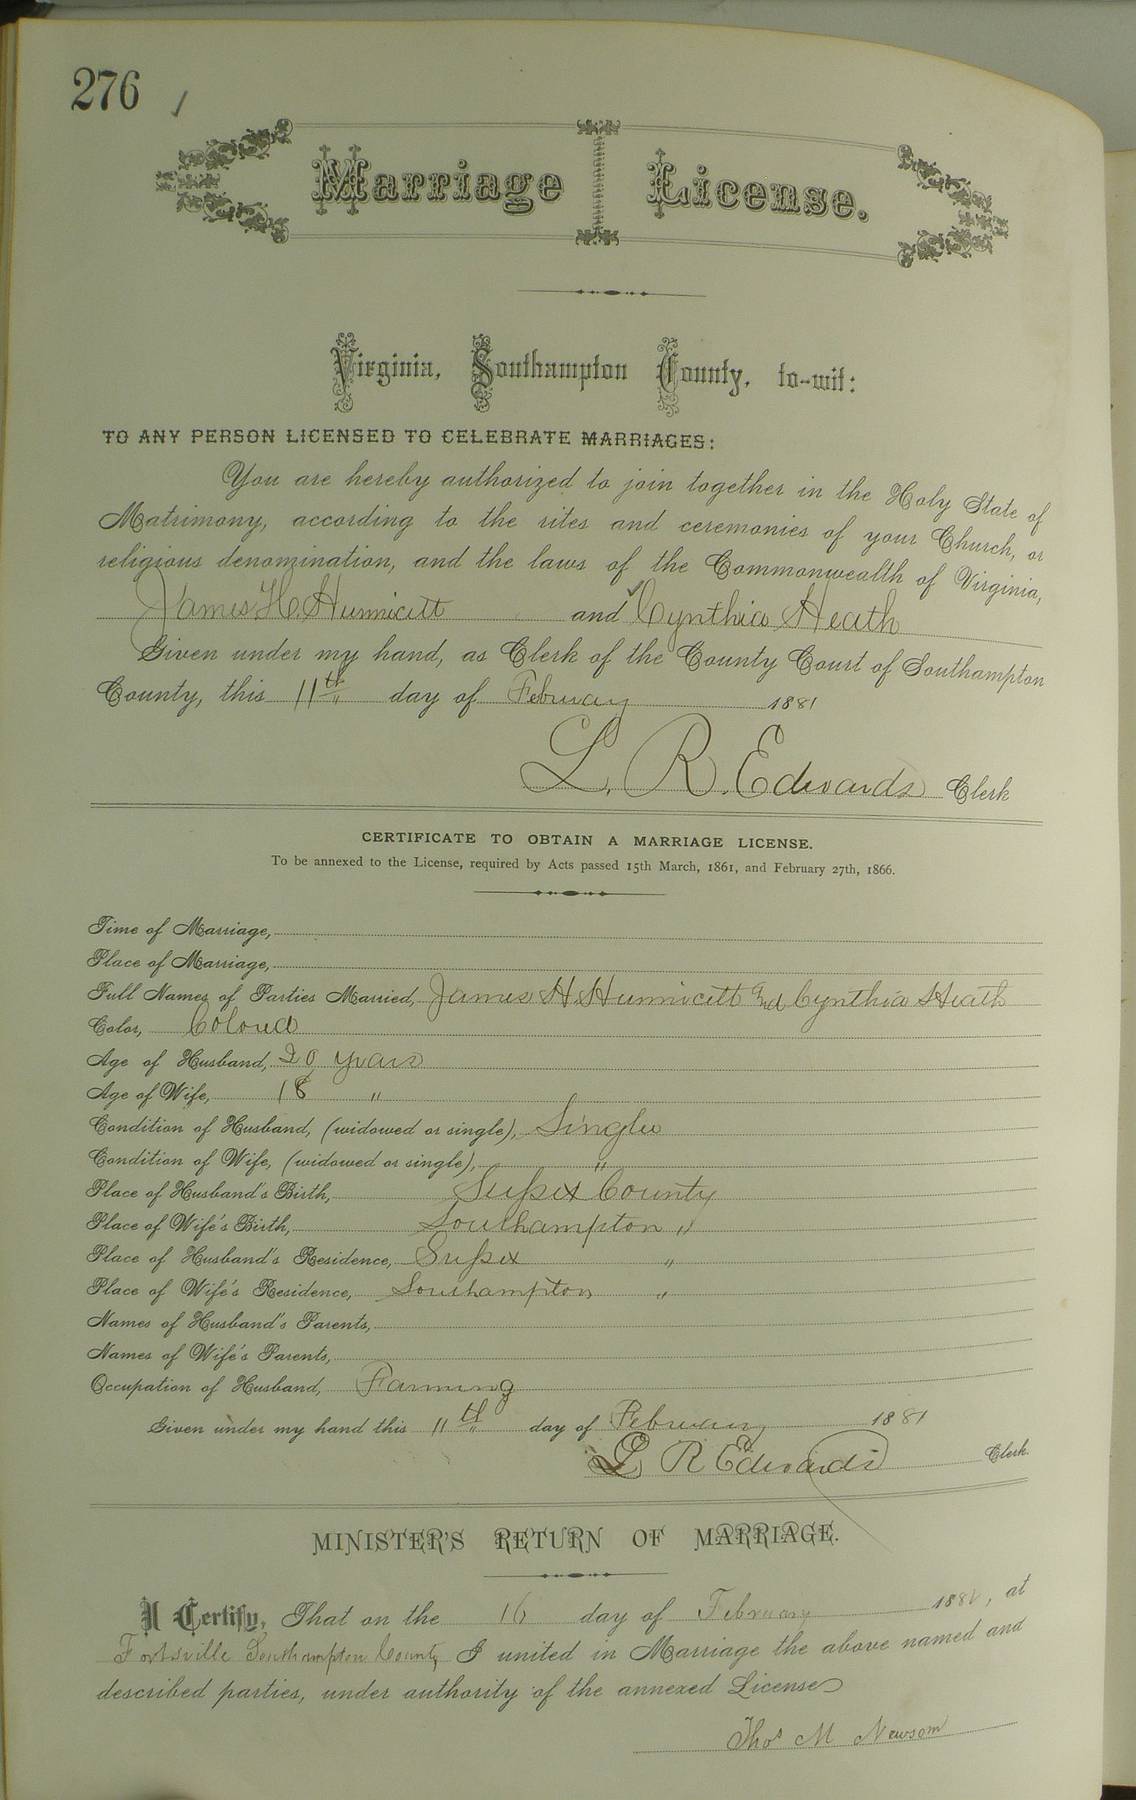 276
Marriage License.
Virginia, Southampton County, to-wit:
TO ANY PERSON LICENSED TO CELEBRATE MARRIAGES:
You are hereby authorized to join together in the Holy State of
Matrimony, according to the rites and ceremonies of your Church, or
religious denomination, and the laws of the Commonwealth of Virginia,
James H. Hunnicutt and Cynthia Heath
Given under my hand, as Clerk of the County Court of Southampton
County, this 11th day of February 1881
L. R. Edwards Clerk
CERTIFICATE TO OBTAIN A MARRIAGE LICENSE.
To be annexed to the License, required by Acts passed 15th March, 1861, and February 27th, 1866.
Time of Marriage,
Place of Marriage,
Full Names of Parties Married, James H. Hunnicutt and Cynthia Heath
Color, Colored
Age of Husband, 20 years
Age of Wife, 18 "
Condition of Husband, (widowed or single), Single
Condition of Wife, (widowed or single), "
Place of Husband's Birth, Sussex County
Place of Wife's Birth, Southampton "
Place of Husband's Residence, Sussex "
Place of Wife's Residence, Southampton "
Names of Husband's Parents,
Names of Wife's Parents,
Occupation of Husband, Farming
Given under my hand this 11th day of February 1881
L R Edwards Clerk.
MINISTER'S RETURN OF MARRIAGE.
I Certify, That on the 16 day of February 1881, at
Fortsville Southampton County I united in Marriage the above named and
described parties, under authority of the annexed License
Thos M Newsom